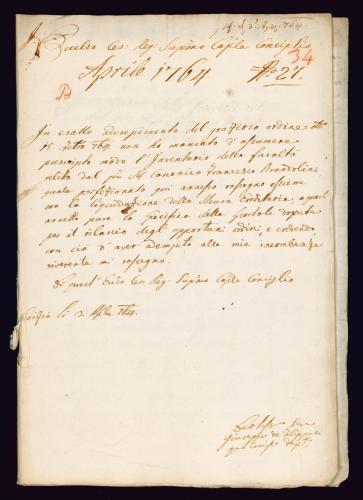 34
Eccelso Ces. Reg. Supmo Caple Consiglio
Aprile 1764 No 27.
In esatto adempimento del grazioso ordine
15 764. non ho mancato d'assumere
prescripto modo l'Inventario della facoltà
relita dal Canonico Francesco Brandolini
quale perfezionato qui annesso rassegno assieme
con la liquidazione della Massa Ereditaria, a quest
annetto pure la specifica delle
per il rilascio degli opportuni ordini, e credendo
con ciò d'aver adempito alle mie incombenze
riverente mi rassegno.
Di quest' Ecc Ces Reg. Supmo Caple Consiglio
Gorizia li 3. Aple 764.
Giuseppe de